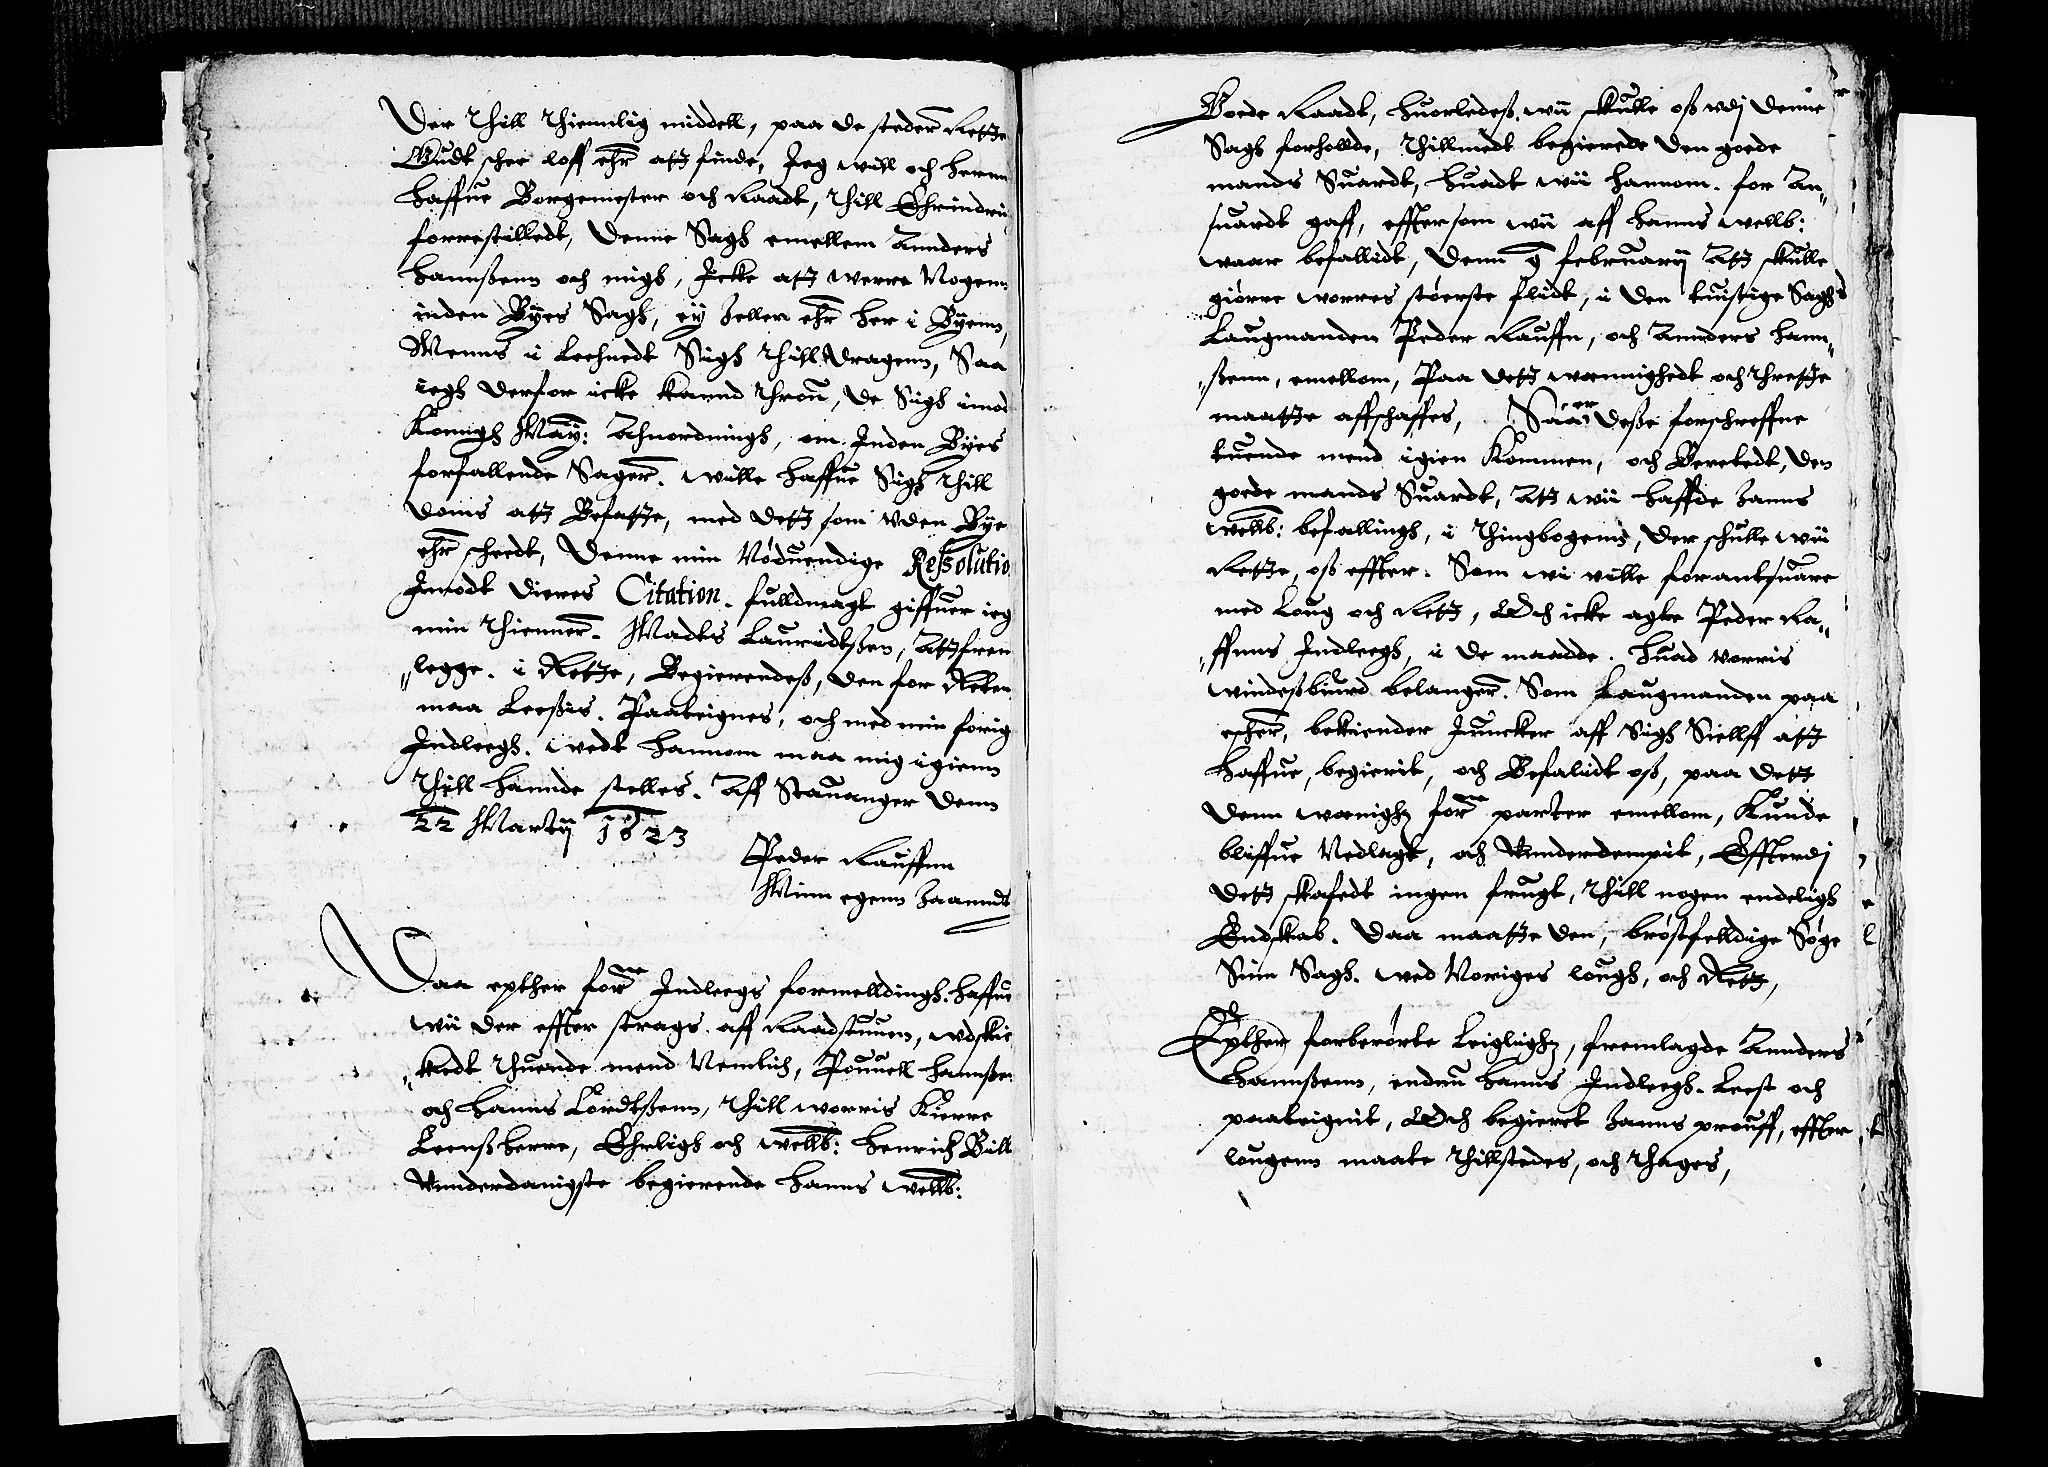 Der thill thiennlig middell, paa de steder Retze
Gudt schee loff ehr atz finde, Jeg will och herm
haffue Borgemester och Raadt, thill Ehrindri
forrestilledt, denne Sagh emellem Annders
hannßenn och migh, Icke atz werre Nogenn
inden Byes Sagh, ey heller ehr her i Byenn,
Menns i Leehnedt Sigh thilldragenn, Saa
iegh derfor icke kannd throu, de Sigh imod
Konngh May: Ahnordningh, om Inden Byes
forfallende Sager. wille haffue Sigh thill
doms atz Befatze, med detz som vden Bye
ehr scheedt, Denne min Nöduendige Reßolutio
Imodt dieres Citation. fulldmagt giffuer ieg
min thienner. Madts Lauridtßen, Atz frem
legge. i Retze, Begierendeß, den for Retten
maa Leeßis. Paateignes, och med min forig
Indleegh. wedt hannom maa mig igienn
thill hannde stelles. Aff Stauanger denn
22 Martij 1623
Peder Rauffnn
Minn egenn haanndt
Daa epther forne Indleegs formelldingh. haffue
wii der effter strags. aff Raadstuuen, wdskic
kedt thuende mend Nemlich, Pouuell hannßen
och hanns Lordtßenn, thill worris Kierre
Leenßherre, Ehrligh och wellb: Henrich Bill
Vnnderdanigste begierende hanns wellb:
Goede Raadt, huorledeß, wii skulle oß vdj denne
Sagh forhollde, thillmedt begierede den goede
mands Suardt, huadt wii hannom. for An
suardt gaff, effter som wii aff hanns wellb:
waar befallidt, denn 9 february Atz skulle
giörre worres störste flidt, i den tuistige Sagh
Laugmanden Peder Rauffn, och Annders hann
ßenn, emellom, Paa detz wennighedt och thretze
maatze affschaffes, Saa er deße forschreffne
tuende mend igien Kommen, och Beretedt, den
goede mands Suardt, Atz wii haffde hanns
wellb: befallingh, i thingbogenn, der schulle wii
Retze, oß effter. Som wi wille forantsuare
med Loug och Retz, Och icke agte Peder Ra
ffnns Indleegh, i de maadde. huad vorris
windeßbiurd belanger. Som Laugmanden paa
escher, bekiender Juncker aff Sigh Siellff atz
haffue, begierit, och Befalidt oß, paa detz
denn wenigh forne parter emellom, Kunde
bliffue Nedlagt, och Vnnderdempit, Effterdj
detz skafedt ingen frugt, thill nogen endeligh
Endskab. Daa maatze den, bröstfelldige Söge
Sinn Sagh. wed Noriges lough, och Retz,
Epther forberörte Leiglighed, fremlagde Annders
Hannßenn, endnu hanns Indleegh. Leest och
paateignit, Och begieret hanns prouff, effter
lougenn maate thillstedes, och thages,